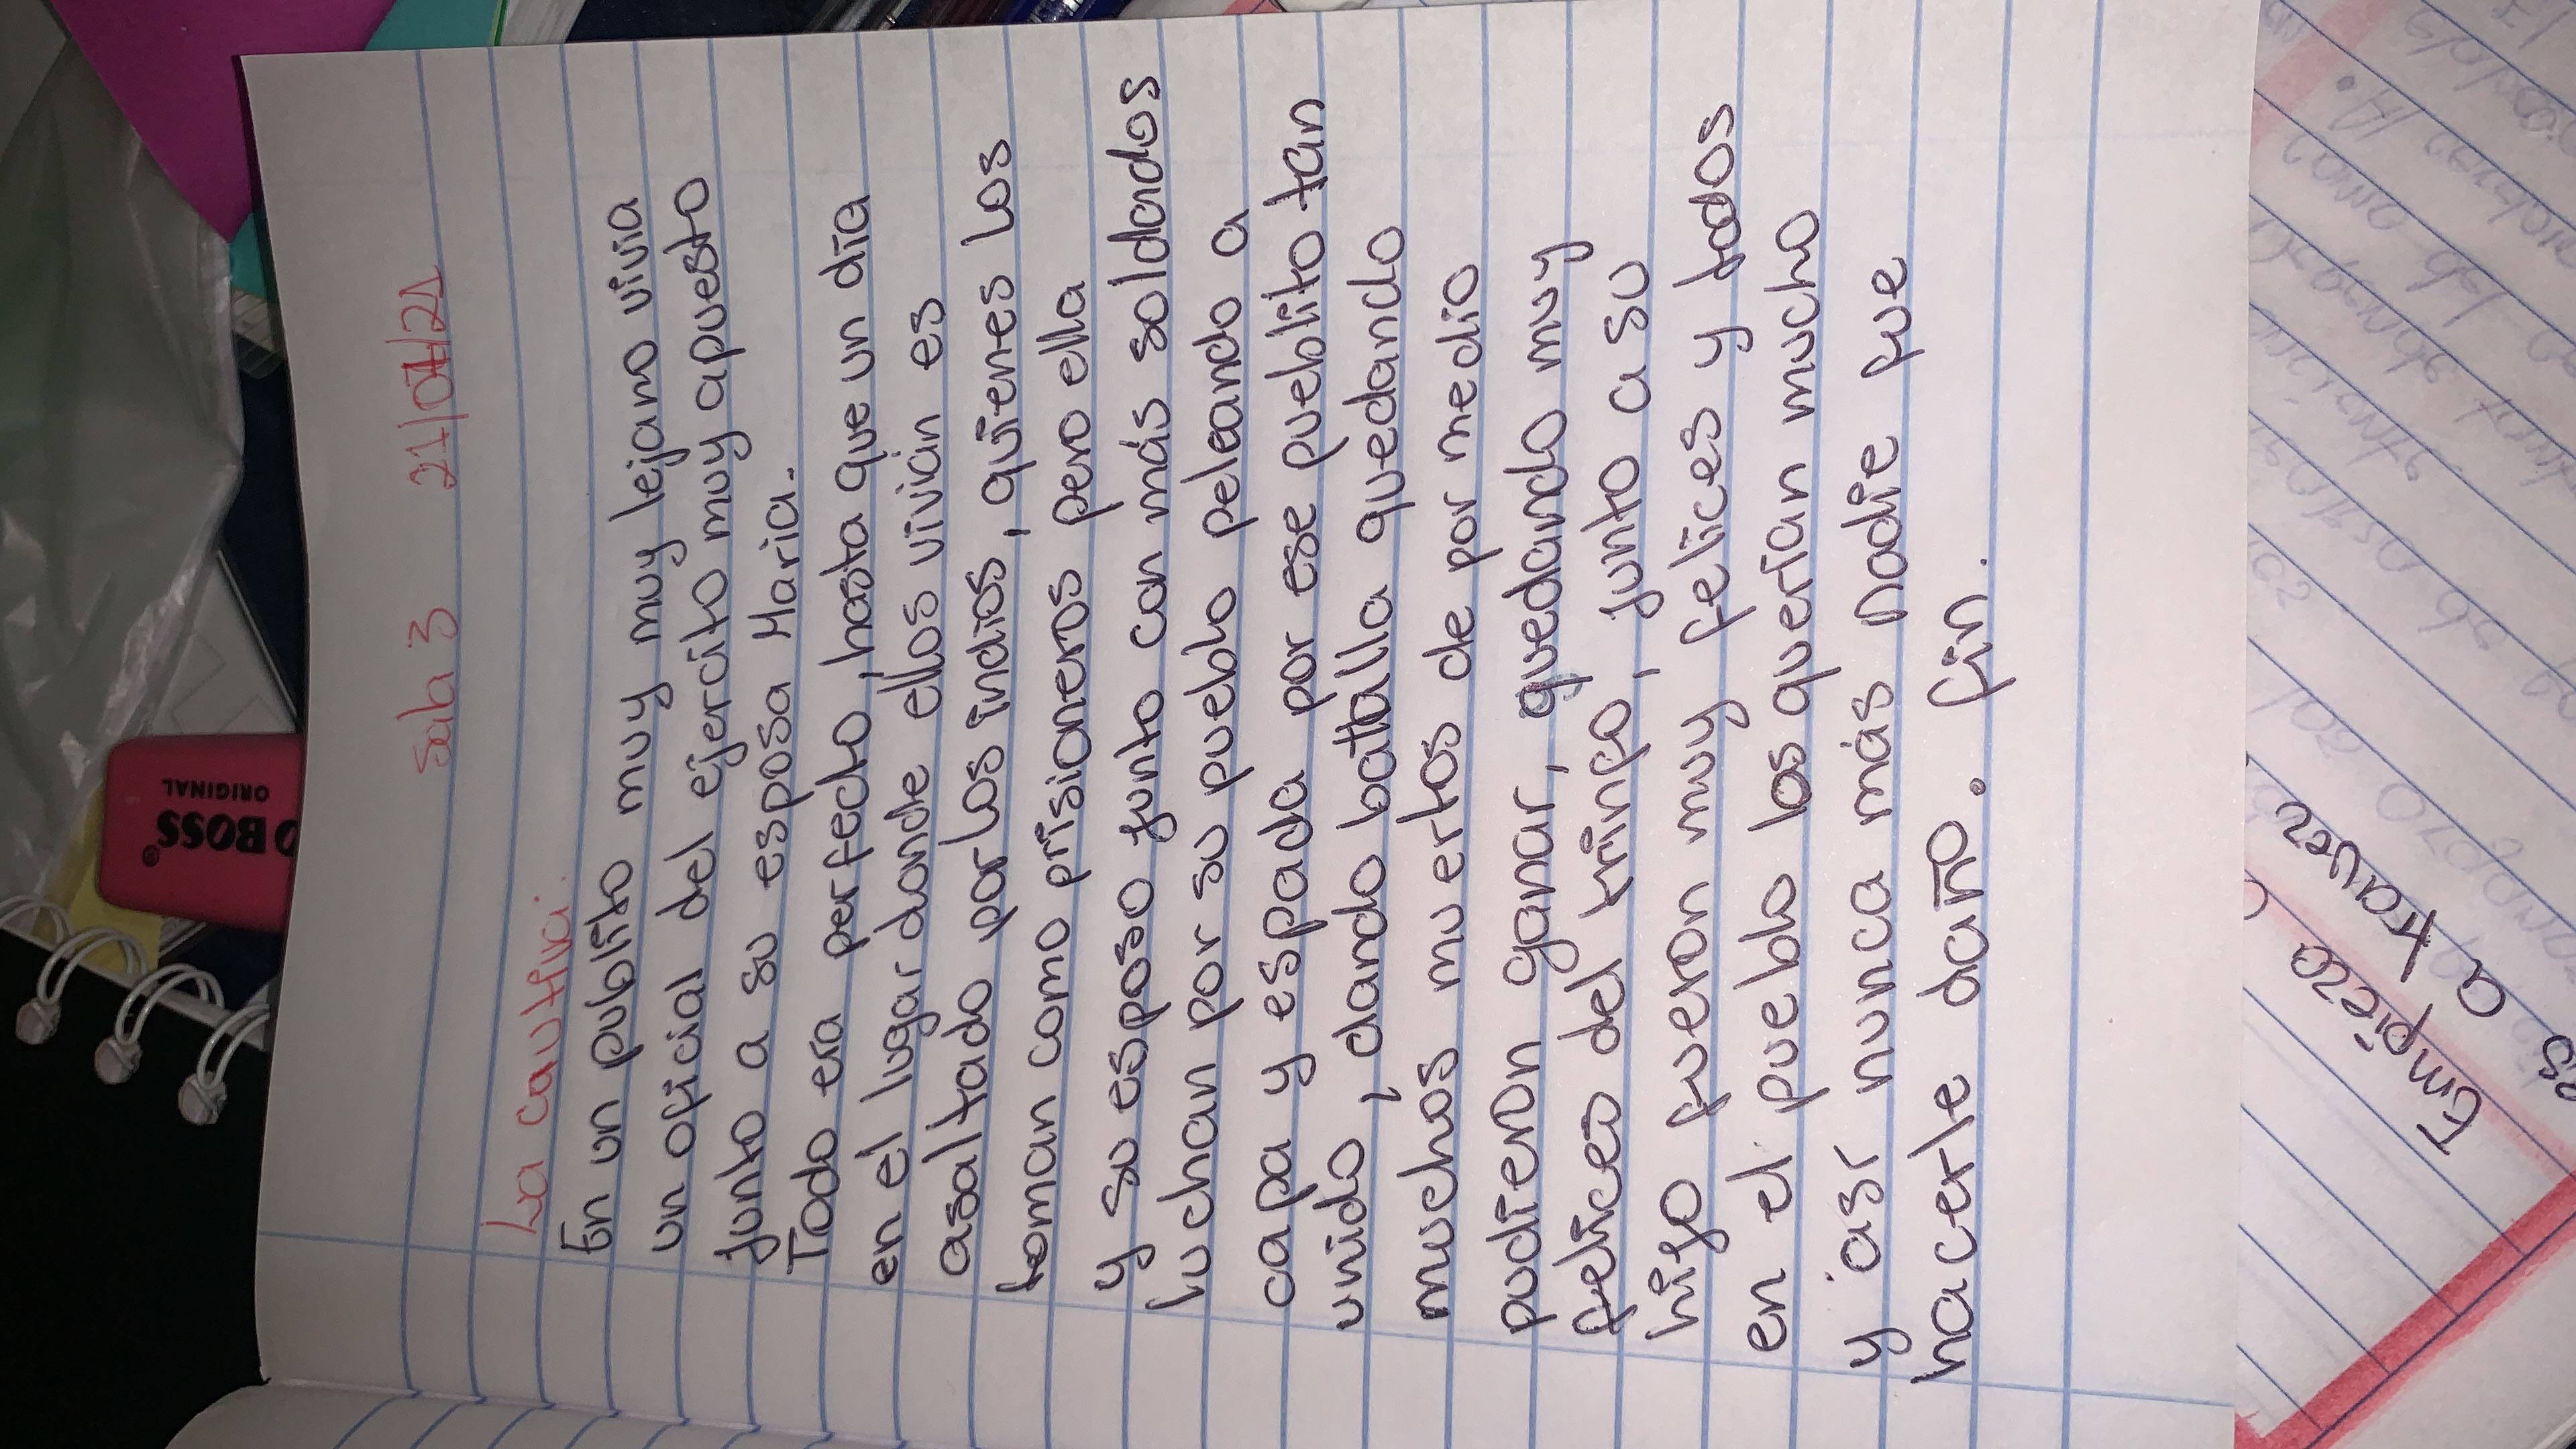 Sala 3 21/07/21
La cautiva.
En un publito muy muy lejano vivia
un oficial del ejercito muy apuesto
junto a su esposa Maria.
Todo era perfecto, hasta que un día
en el lugar donde ellos vivian es
asaltado por los indios, quienes los
toman como prisioneros pero ella
y su esposo junto con más soldados
luchan por su pueblo peleando a
capa y espada por ese pueblito tan
unido, dando batalla quedando
muchos muertos de por medio
pudieron ganar, quedando muy
felices del trinfo, junto a su
hijo fueron muy felices y todos
en el pueblo los querían mucho
y asi nunca más nadie fue
hacerle daño. fin.
BOSS
ORIGINAL
Empiezo
a traves
es